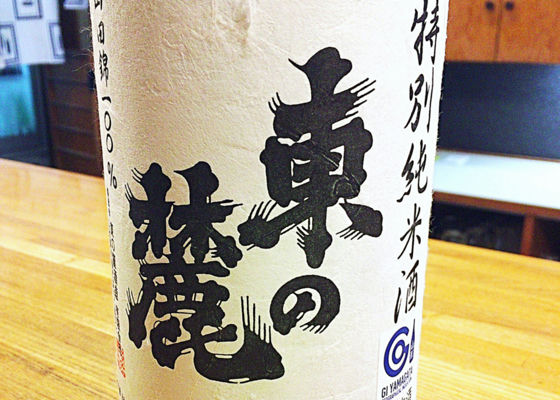 特別純米酒
東の
麓
山田錦一〇〇%
GI YAMAGATA